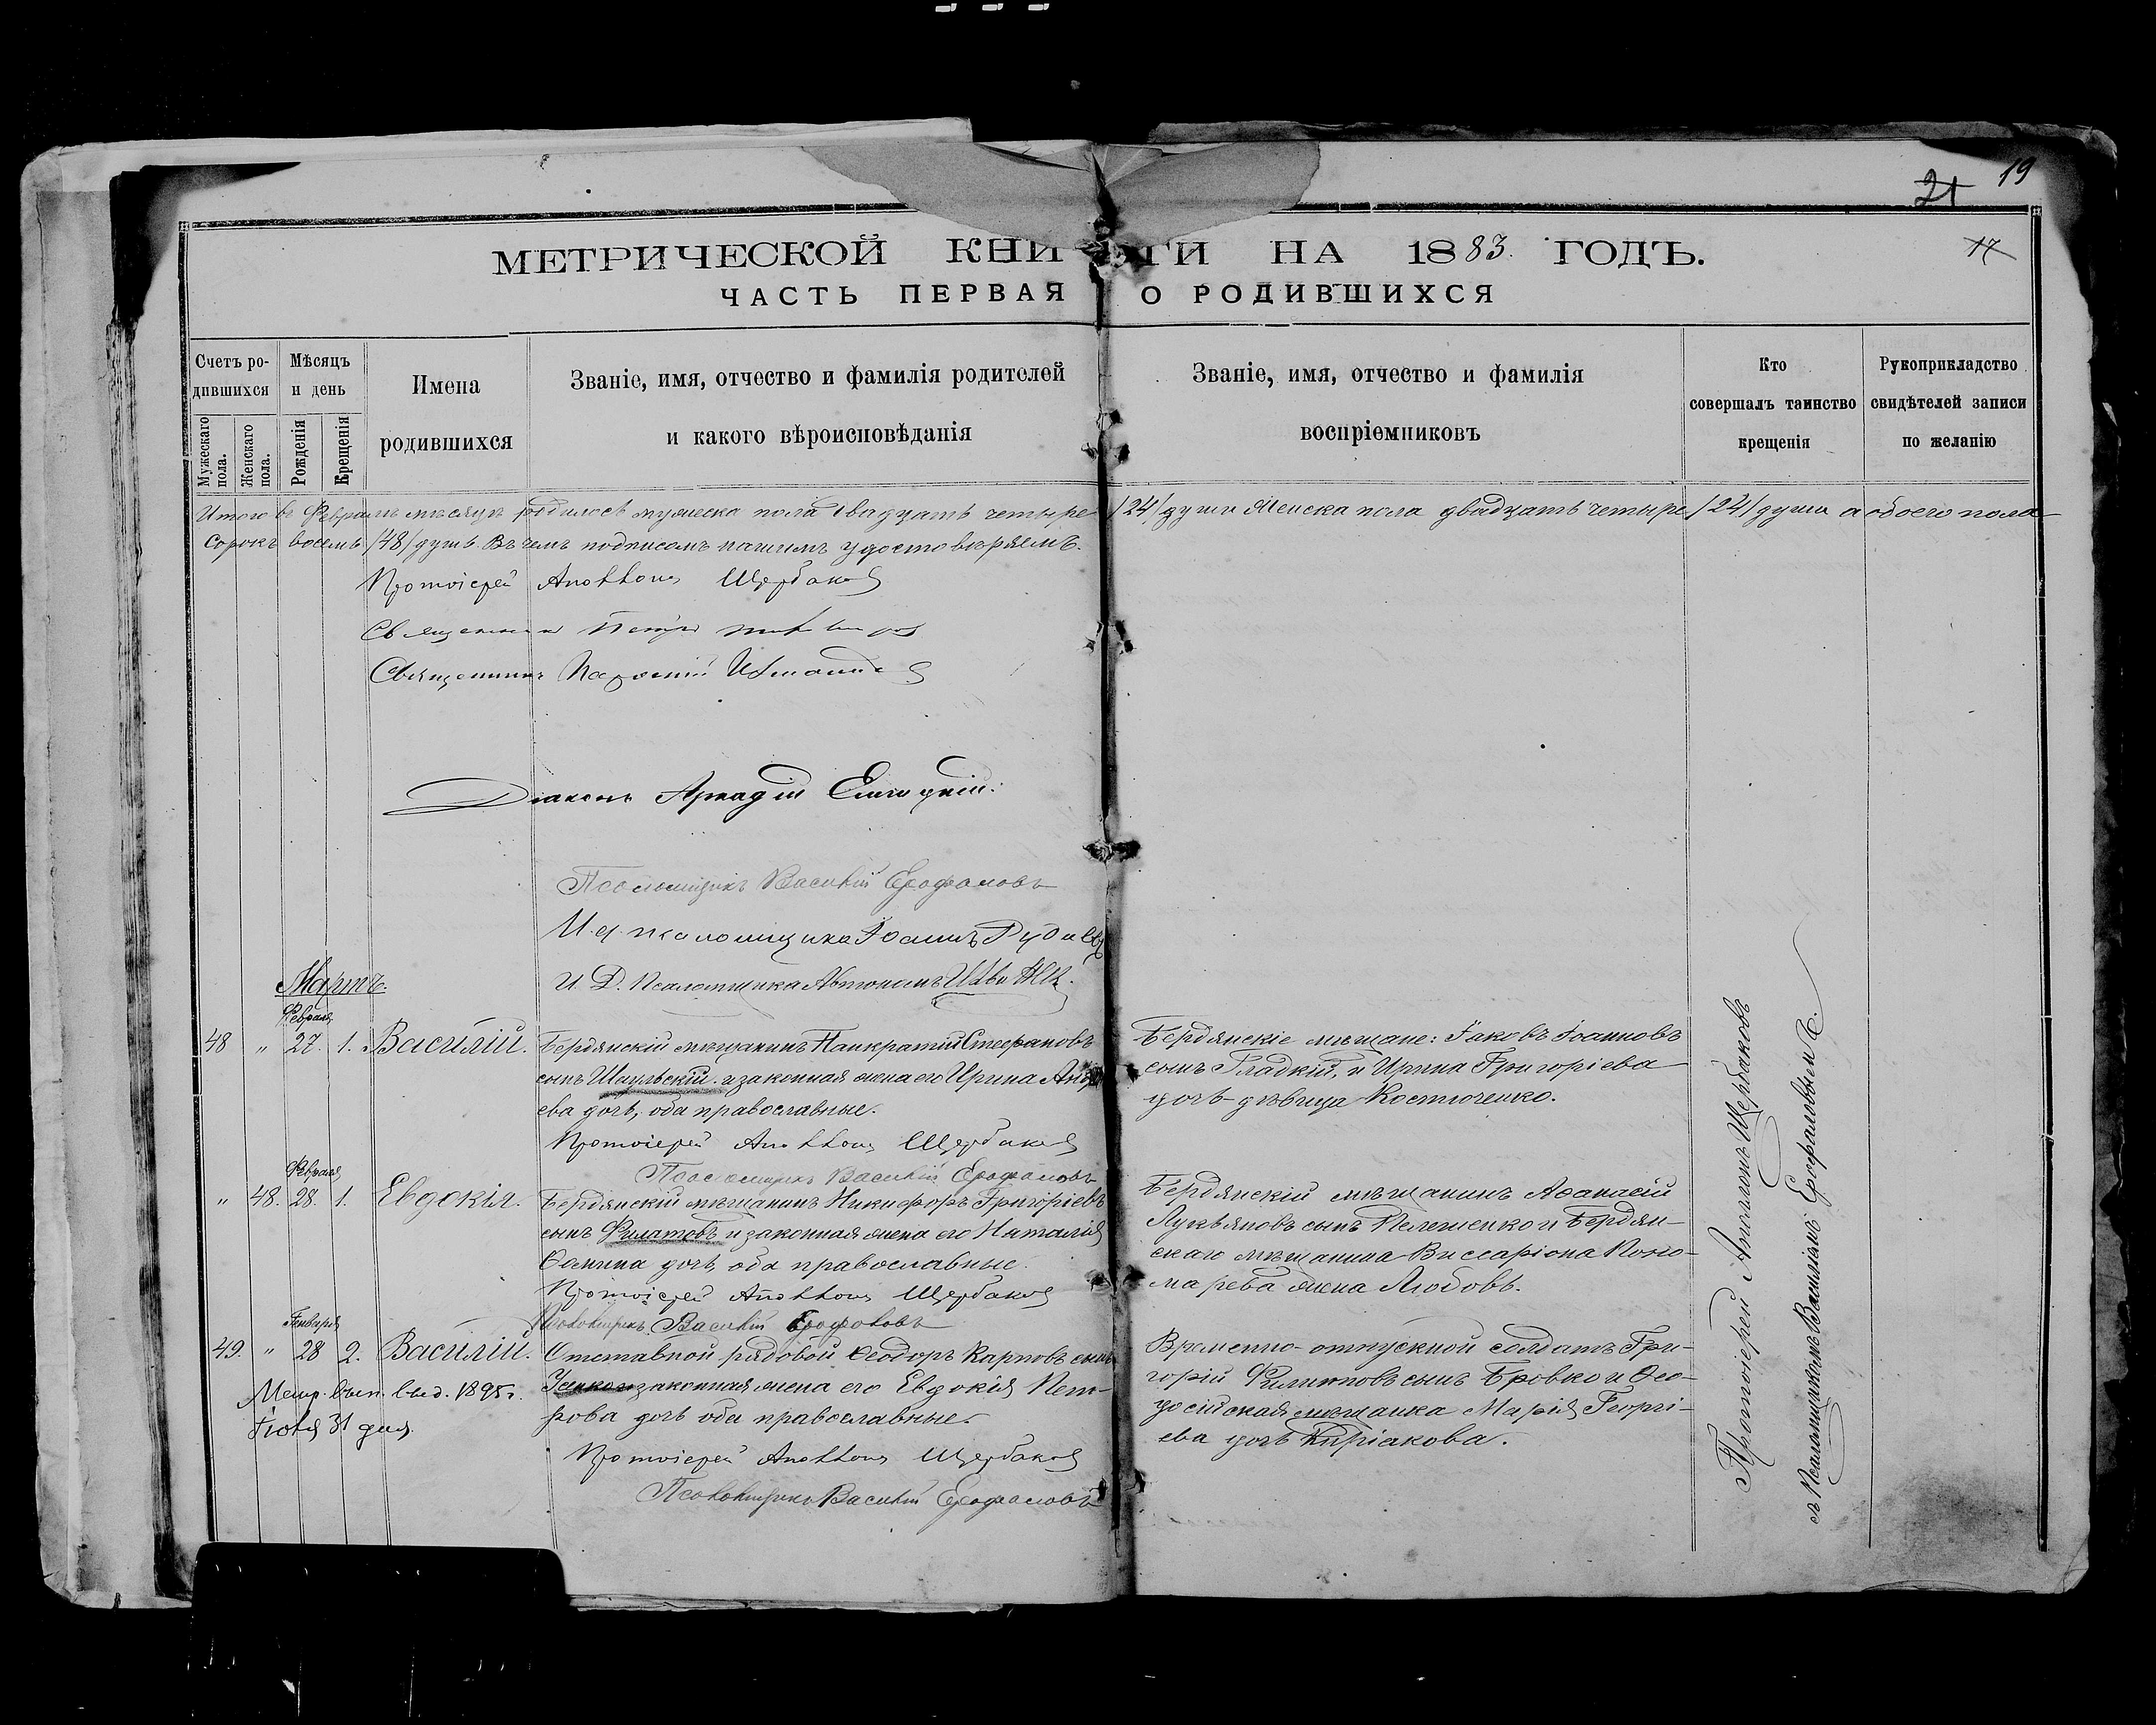 19
21
17
МЕТРИЧЕСКОЙ КНИГИ НА 1883 ГОДЪ.
ЧАСТЬ ПЕРВАЯ О РОДИВШИХСЯ
Счетъ родившихся
Мужескаго пола.
Женскаго пола.
Мѣсяцъ и день
Рожденія
Крещенія
Имена
родившихся
Званіе, имя, отчество и фамилія родителей
и какого вѣроисповѣданія
Званіе, имя, отчество и фамилія
воспріемниковъ
Кто
совершалъ таинство
крещенія
Рукоприкладство
свидѣтелей записи
по желанію
Итого въ Февралѣ мѣсяцѣ родилось мужеска пола двадцать четыре /24/ души Женска пола двадцать четыре /24/ души а обоего пола
сорокъ восемь /48/ душъ. Въ чемъ подписомъ нашимъ удостовѣряемъ.
Протоіерей Аполлонъ Щербаковъ
Священникъ Петръ
Священникъ
Діаконъ Аркадій
Псаломщикъ Василій Ерофаловъ
И. д. псаломщика Іоаннъ
И. Д. Псаломщика Автономъ
Мартъ.
Февраля
48 " 27. 1. Василій. Бердянскій мѣщанинъ Панкратій Стефановъ
сынъ Шаульскій и законная жена его Ирина
ева дочь, оба православные.
Протоіерей Аполлонъ Щербаковъ
Псаломщикъ Василій Ерофаловъ
Бердянскіе мѣщане: Іаковъ Іоанновъ
сынъ Гладкій и Ирина Григоріева
дочь дѣвица Костюченко.
Февраля
" 48. 28. 1. Евдокія. Бердянскій мѣщанинъ Никифоръ Григоріевъ
сынъ Филатовъ и законная жена его Наталія
дочь, оба православные.
Протоіерей Аполлонъ Щербаковъ
Псаломщикъ Василій Ерофаловъ
Бердянскій мѣщанинъ Аѳанасій
Лукьяновъ сынъ Пелешенко и Бердян-
скаго мѣщанина Виссаріона Поно-
марева жена Любовь.
Генваря
49. " 28 2. Василій. Отставной рядовой Ѳеодоръ Карповъ сынъ
законная жена его Евдокія Пет-
рова дочь оба православные.
Метр. вып. выд. 1895 г.
Іюля 31 дня.
Протоіерей Аполлонъ Щербаковъ
Псаломщикъ Василій Ерофаловъ
Временно-отпускной солдатъ Гри-
горій Филипповъ сынъ Бровко и Ѳео-
досійская мѣщанка Марія Георгі-
ева дочь Киріакова.
Протоіерей Аполлонъ Щербаковъ
съ Псаломщикомъ Василіемъ Ерофаловымъ.